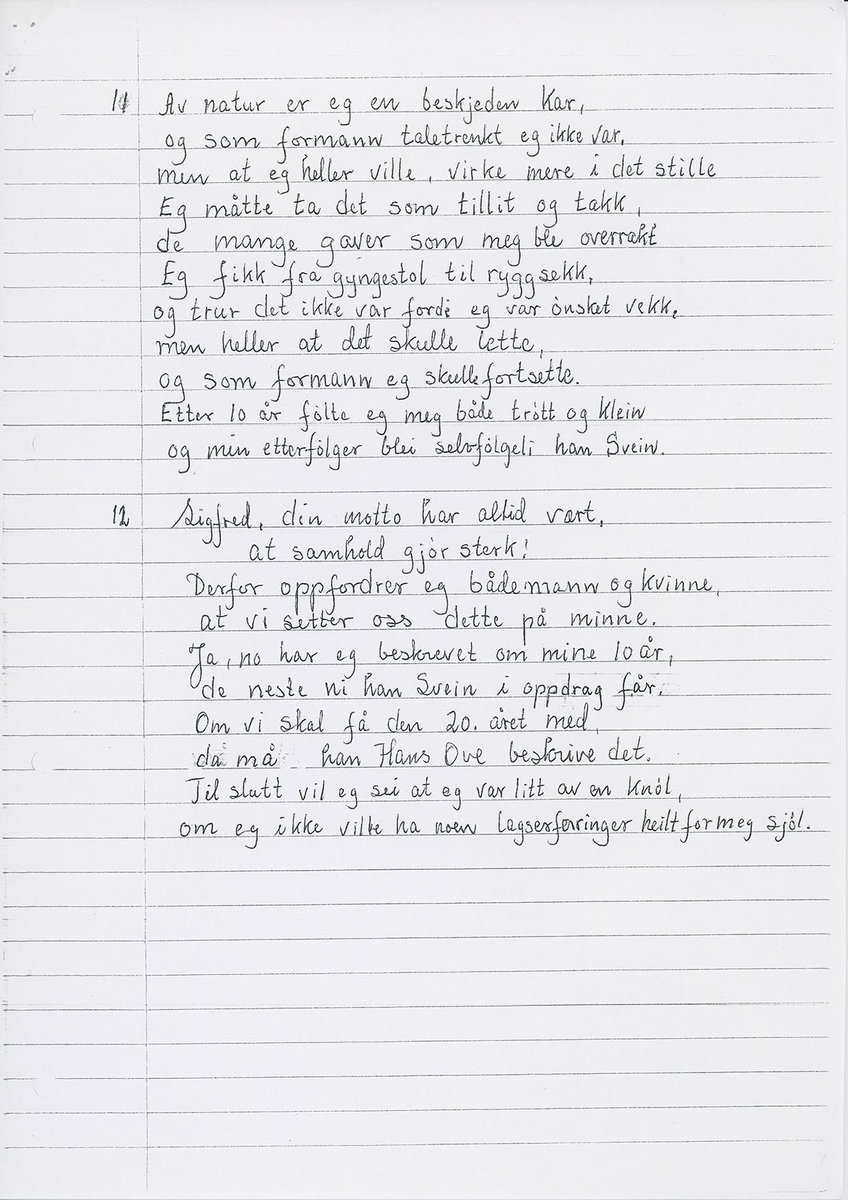 11 Av natur er eg en beskjeden Kar,
og som formann taletrenkt eg ikke var,
men at eg heller ville, virke mere i det stille
Eg måtte ta det som tillit og takk,
de mange gaver som meg ble overrakt
Eg fikk fra gyngestol til ryggsekk,
og trur det ikke var fordi eg var ònsket vekk,
men heller at det skulle lette,
og som formann eg skulle fortsette.
Etter 10 år fòlte eg meg både tròtt og Klein
og min etterfòlger blei selvfòlgeli han Svein.
12 Sigfred, din motto har altid vært,
at samhold gjòr sterk!
Derfor oppfordrer eg både mann og Kvinne,
at vi setter oss dette på minne.
Ja, no har eg beskrevet om mine 10 år,
de neste ni han Svein i oppdrag får.
Om vi skal få den 20. året med,
da må han Hans Ove beskrive det.
Til slutt vil eg sei at eg var litt av en Knòl,
om eg ikke ville ha noen lagserfaringer heilt for meg sjòl.